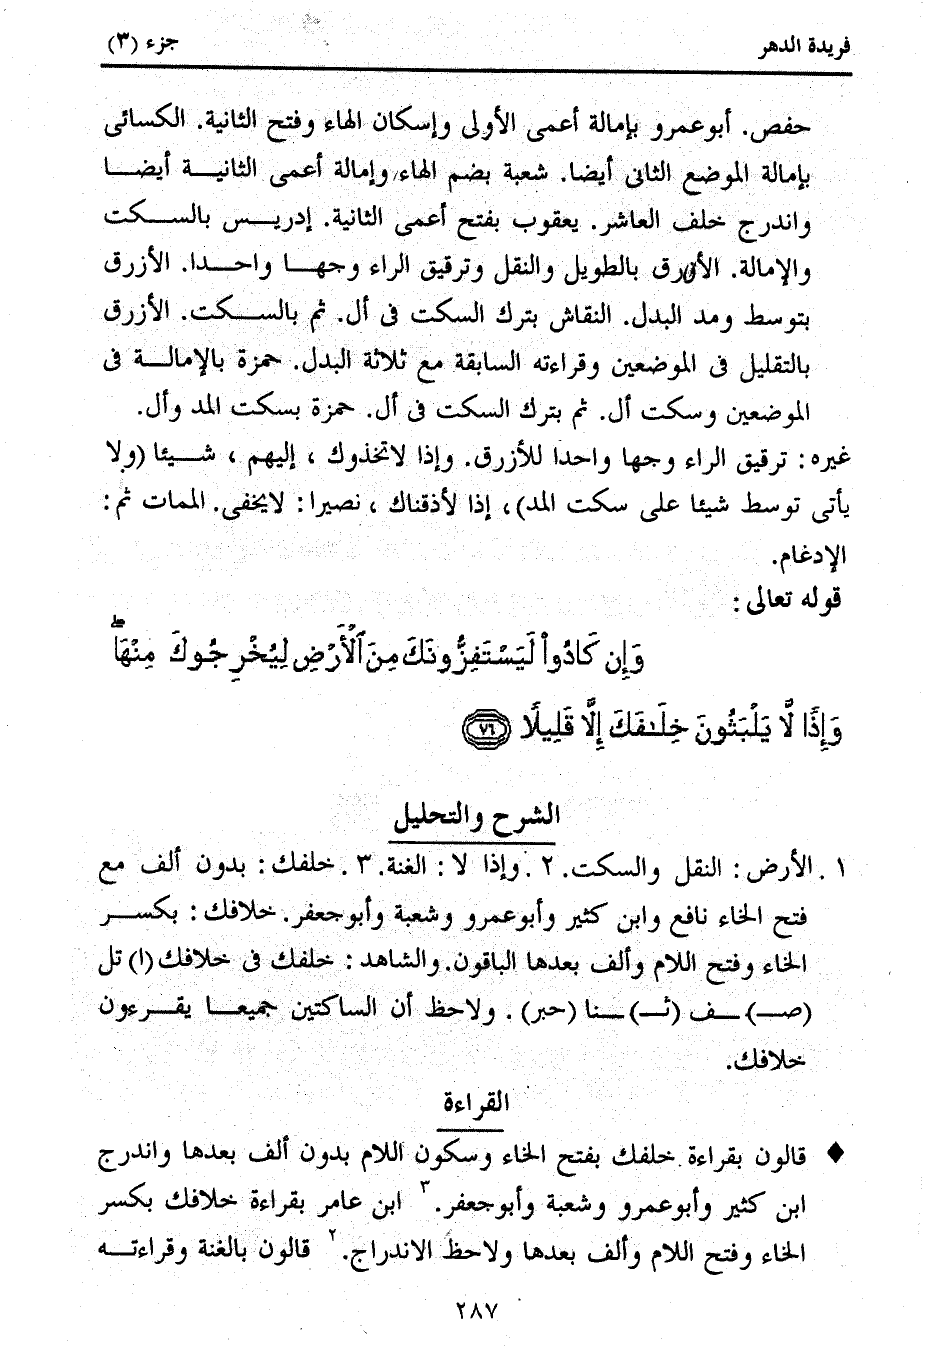 فريدة الدهر جزء (٣)
حفص. أبوعمرو بإمالة أعمى الأولى وإسكان الهاء وفتح الثانية. الكسائى
بإمالة الموضع الثانى أيضا. شعبة بضم الهاء وإمالة أعمى الثانيـة أيضـا
واندرج خلف العاشر. يعقوب بفتح أعمى الثانية. إدريـس بالسـكت
والإمالة. الأزرق بالطويل والنقل وترقيق الراء وجهـا واحـدا. الأزرق
بتوسط ومد البدل. النقاش بترك السكت فى أل. ثم بالسـكت. الأزرق
بالتقليل فى الموضعين وقراءته السابقة مع ثلاثة البدل. حمزة بالإمالـة فى
الموضعين وسكت أل. ثم بترك السكت فى أل. حمزة بسكت المد وأل.
غيره: ترقيق الراء وجها واحدا للأزرق. وإذا لاتخذوك ، إليهم ، شـيئا (ولا
يأتى توسط شيئا على سكت المد)، إذا لأذقناك ، نصيرا: لايخفى. الممات ثم:
الإدغام.
قوله تعالى:
وَإِن كَادُواْ لَيَسْتَفِزُّونَكَ مِنَ ٱلْأَرْضِ لِيُخْرِجُوكَ مِنْهَاۖ
وَإِذًا لَّا يَلْبَثُونَ خِلَـٰفَكَ إِلَّا قَلِيلًا ٧٦
الشرح والتحليل
١. الأرض: النقل والسكت. ٢. وإذا لا: الغنة. ٣. خلفك: بدون ألف مع
فتح الخاء نافع وابن كثير وأبوعمرو وشعبة وأبوجعفر. خلافك: بكسـر
الخاء وفتح اللام وألف بعدها الباقون. والشاهد: خلفك فى خلافك (ا) تل
(صـ) ـف (ثـ) ـنا (حبر). ولاحظ أن الساكتين جميعـا يقـرءون
خلافك.
القراءة
♦ قالون بقراءة خلفك بفتح الخاء وسكون اللام بدون ألف بعدها واندرج
ابن كثير وأبوعمرو وشعبة وأبوجعفر.٣ ابن عامر بقراءة خلافك بكسر
الخاء وفتح اللام وألف بعدها ولاحظ الاندراج.٢ قالون بالغنة وقراءتـه
٢٨٧